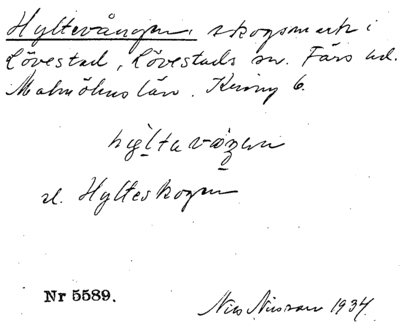 Hyltevången, skogsmark i
Lövestad, Lövestads sn. Färs hd.
Malmöhus län. Kuvny 6.
hỵltavạŋen
el. Hylteskogen
Nr 5589.
Nils Nilsson 1934.